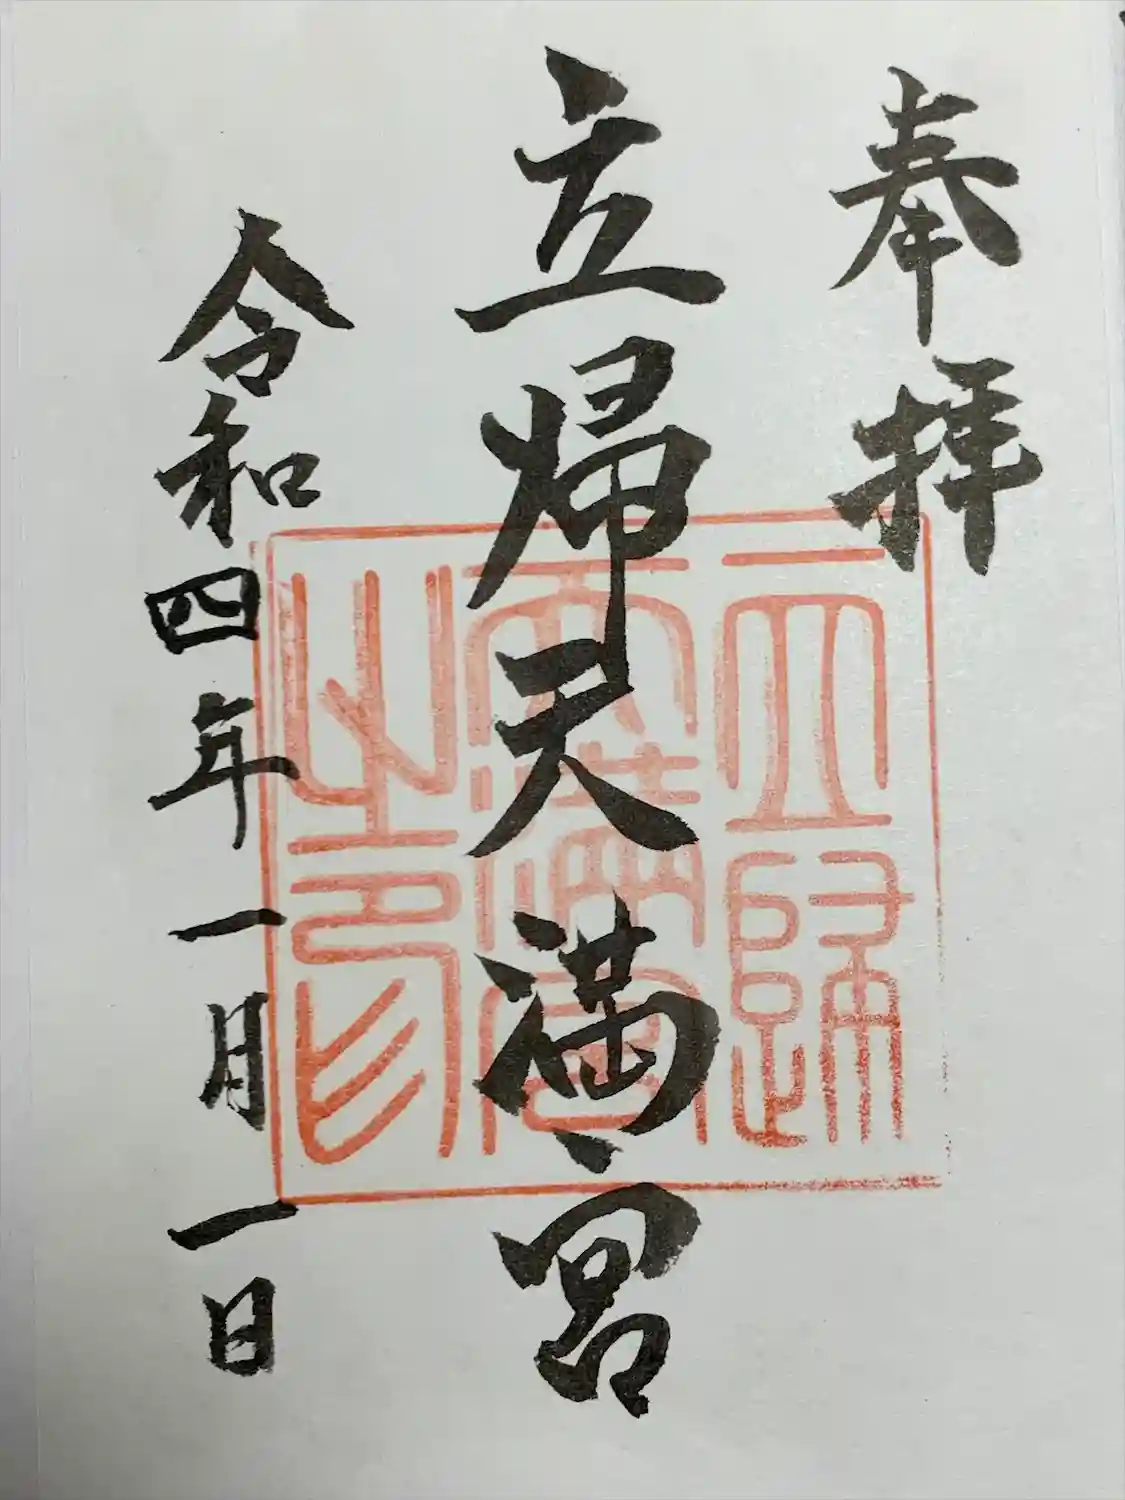 奉拝
立帰天満宮
令和四年一月一日
立歸
天滿宮
之印